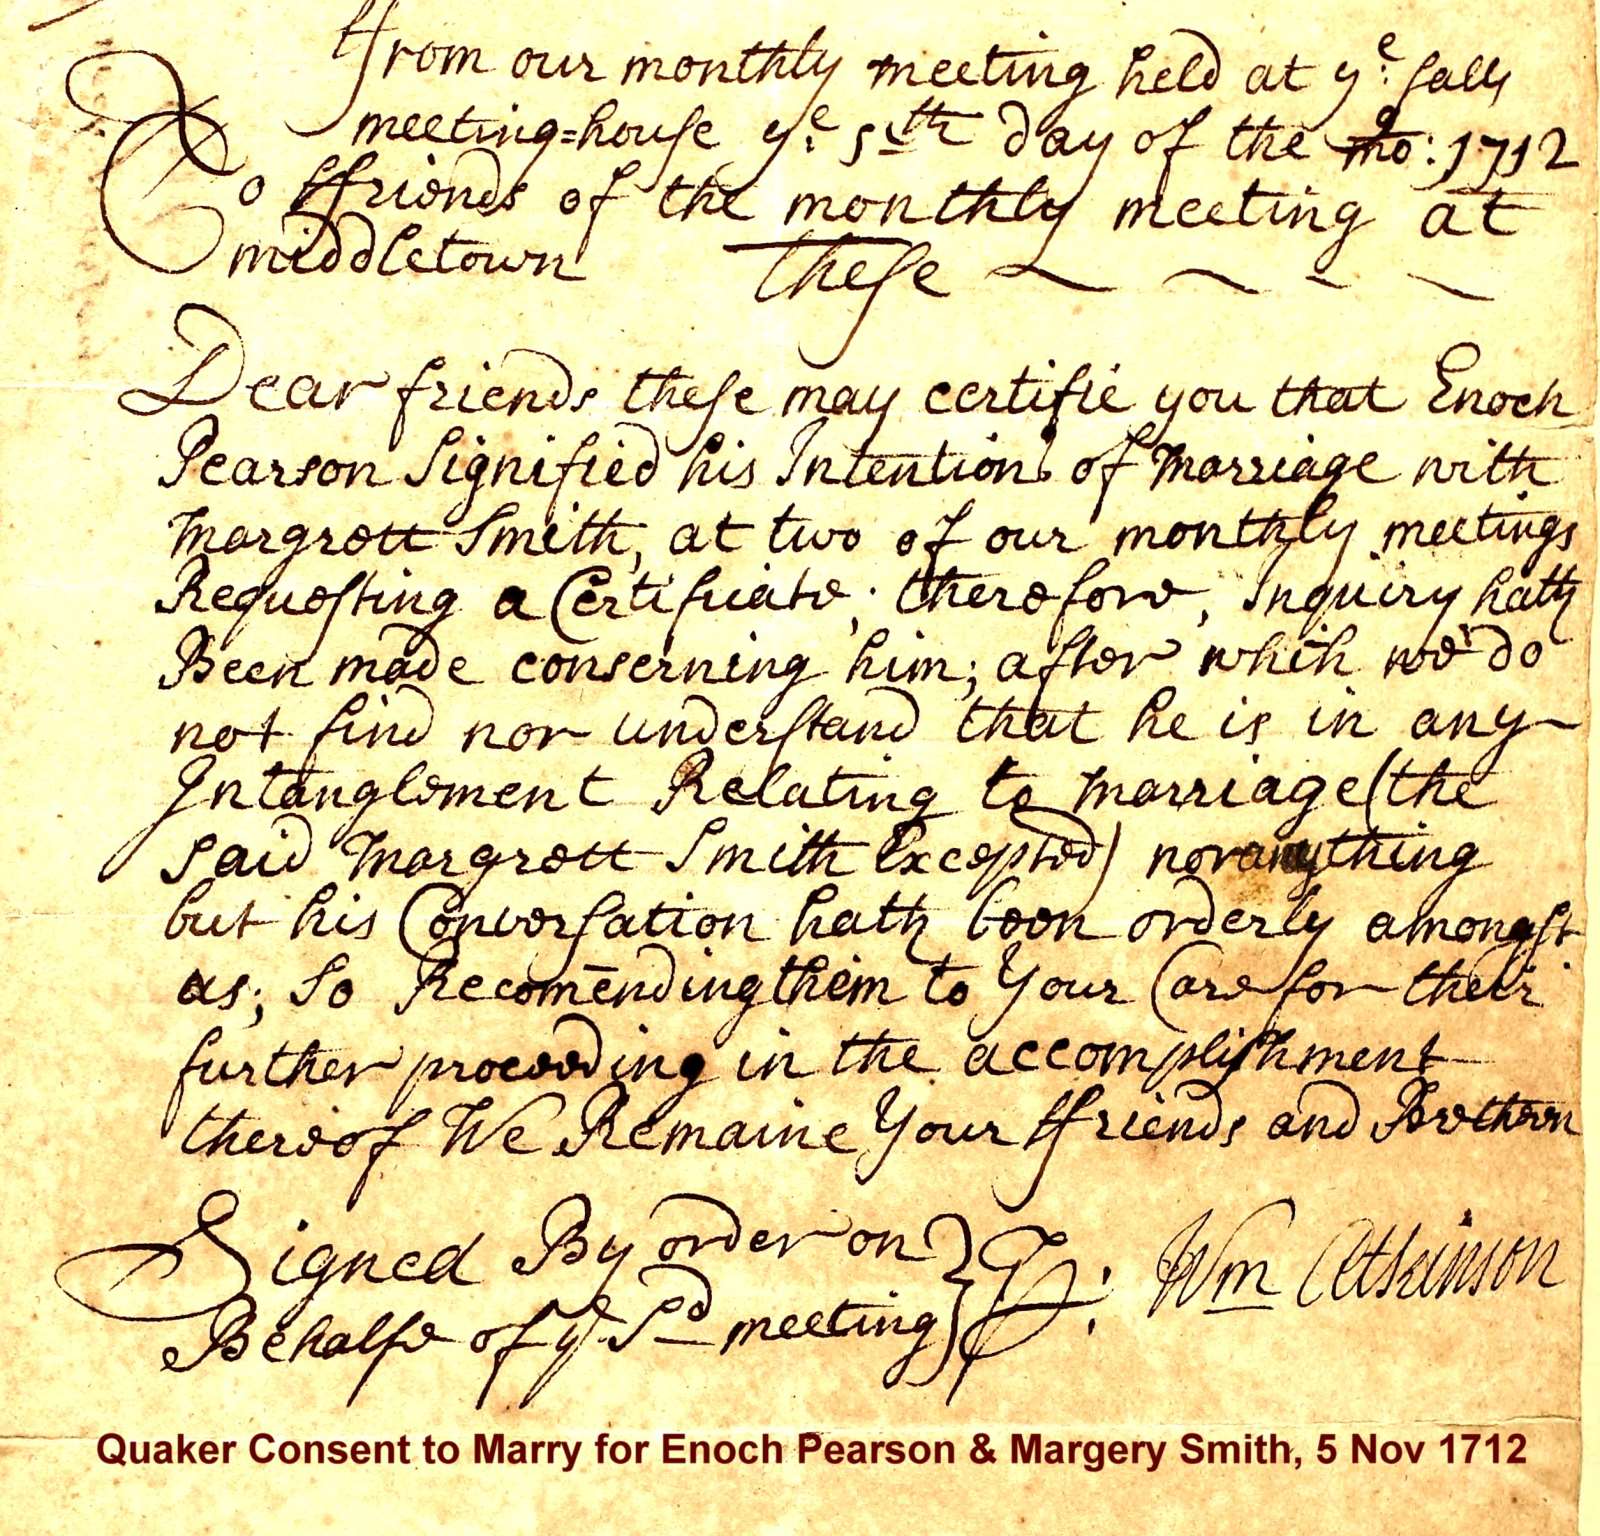 ffrom our monthly meeting held at yᵉ: falls
meeting=house yᵉ: 5th day of the 9 mo: 1712
To ffriends of the monthly meeting at
middletown These
Dear friends these may certifie you that Enoch
Pearson Signified his Intentions of Marriage with
Margrett Smith, at two of our monthly meetings
Requesting a Certificate; therefore, Inquiry hath
Been made conserning him; after which we do
not find nor understand that he is in any
Intanglement Relating to Marriage (the
said Margrett Smith Excepted) nor anything
but his Conversation hath been orderly amongst
us; So Recomēnding them to Your Care for their
further proceeding in the accomplishment
thereof We Remaine Your ffriends and Brethren
Signed By order on
Behalfe of yᵉ Sd meeting } : Wm Atkinson
Quaker Consent to Marry for Enoch Pearson & Margery Smith, 5 Nov 1712